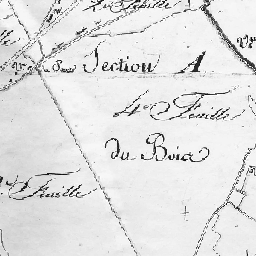 2e Feuille
Section A
4e Feuille
du Bois
Feuille